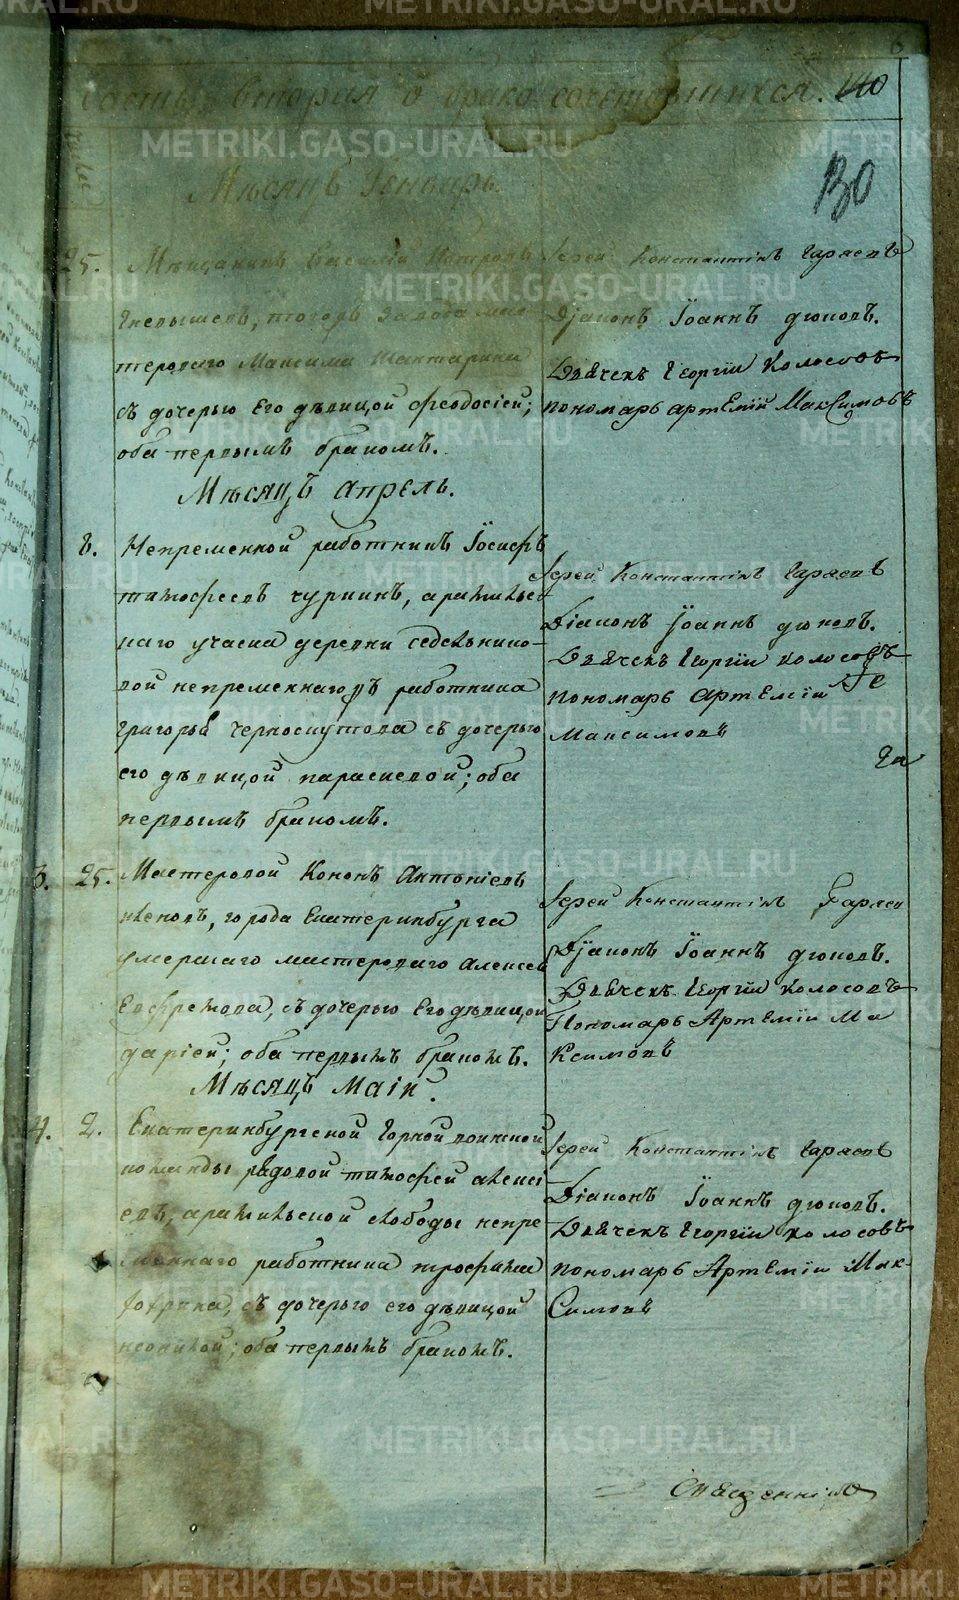 6
Часть вторая о бракосочетавшихся. 110
130
Мѣсяцъ Генварь.
25. Мѣщанинъ Василій Петровъ
тогожъ завода мас
тероваго Максима
съ дочерью его дѣвицой феодосіей;
оба первымъ бракомъ.
Іерей Константінъ Гаряевъ
Діаконъ Іоаннъ дюковъ.
Дьячекъ Георгіи Колосовъ
пономарь артемій Максимовъ
Мѣсяцъ апрель.
8. Непременной работникъ Іосифъ
тимофеевъ чуркинъ, арамильс
каго учаска деревни седельнико-
вой непременнаго работника
григорья черноскутова съ дочерью
его дѣвицой параскевой; оба
первымъ бракомъ.
Іерей Константінъ Гаряевъ
Діаконъ Іоаннъ дюковъ.
Дьячекъ Георгіи колосовъ
пономарь Артемій
Максимовъ
3. 25. Мастеровой Кононъ Антоніевъ
города Екатеринбурга
умершаго мастероваго алексея
Ефремова, съ дочерью его дѣвицой
даріей; оба первымъ бракомъ.
Іерей Константінъ Гаряев
Діаконъ Іоаннъ дюковъ.
Дьячекъ Георгіи колосовъ
Пономарь Артеміи Ма
ксимовъ
Мѣсяцъ Маіи.
4. 2. Екатеринбургской Горной воинской
команды рядовой тимофей алексі
евъ, арамильской слободы непре
меннаго работника трофима
съ дочерью его дѣвицой
неонилой; оба первымъ бракомъ.
Іерей Константінъ Гаряевъ
Діаконъ Іоаннъ дюковъ.
Дьячекъ Георгіи колосовъ
пономарь Артеміи Мак-
Симовъ
Священникъ
METRIKI.GASO-URAL.RU